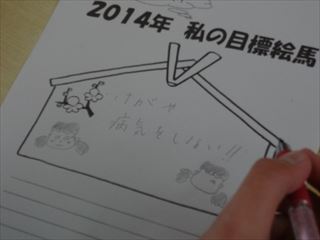 2014年 私の目標絵馬
けがや
病気をしない!!